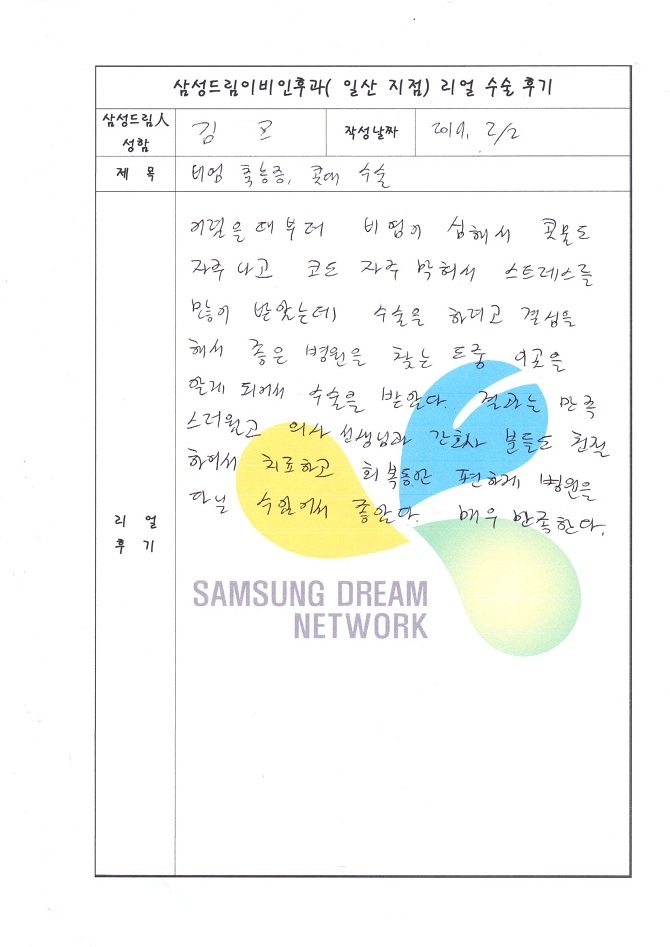 삼성드림이비인후과( 일산 지점) 리얼 수술 후기
삼성드림人 성함
김
작성날짜
2019. 2/2
제 목
비염 축농증, 콧대 수술
리 얼 후 기
어렸을 때 부터 비염이 심해서 콧물도
자주 나고 코도 자주 막혀서 스트레스를
많이 받았는데 수술을 하려고 결심을
해서 좋은 병원을 찾는 도중 이곳을
알게 되어서 수술을 받았다. 결과는 만족
스러웠고 의사 선생님과 간호사 분들도 친절
하여서 치료하고 회복동안 편하게 병원을
다닐 수 있어서 좋았다. 매우 만족한다.
SAMSUNG DREAM
NETWORK